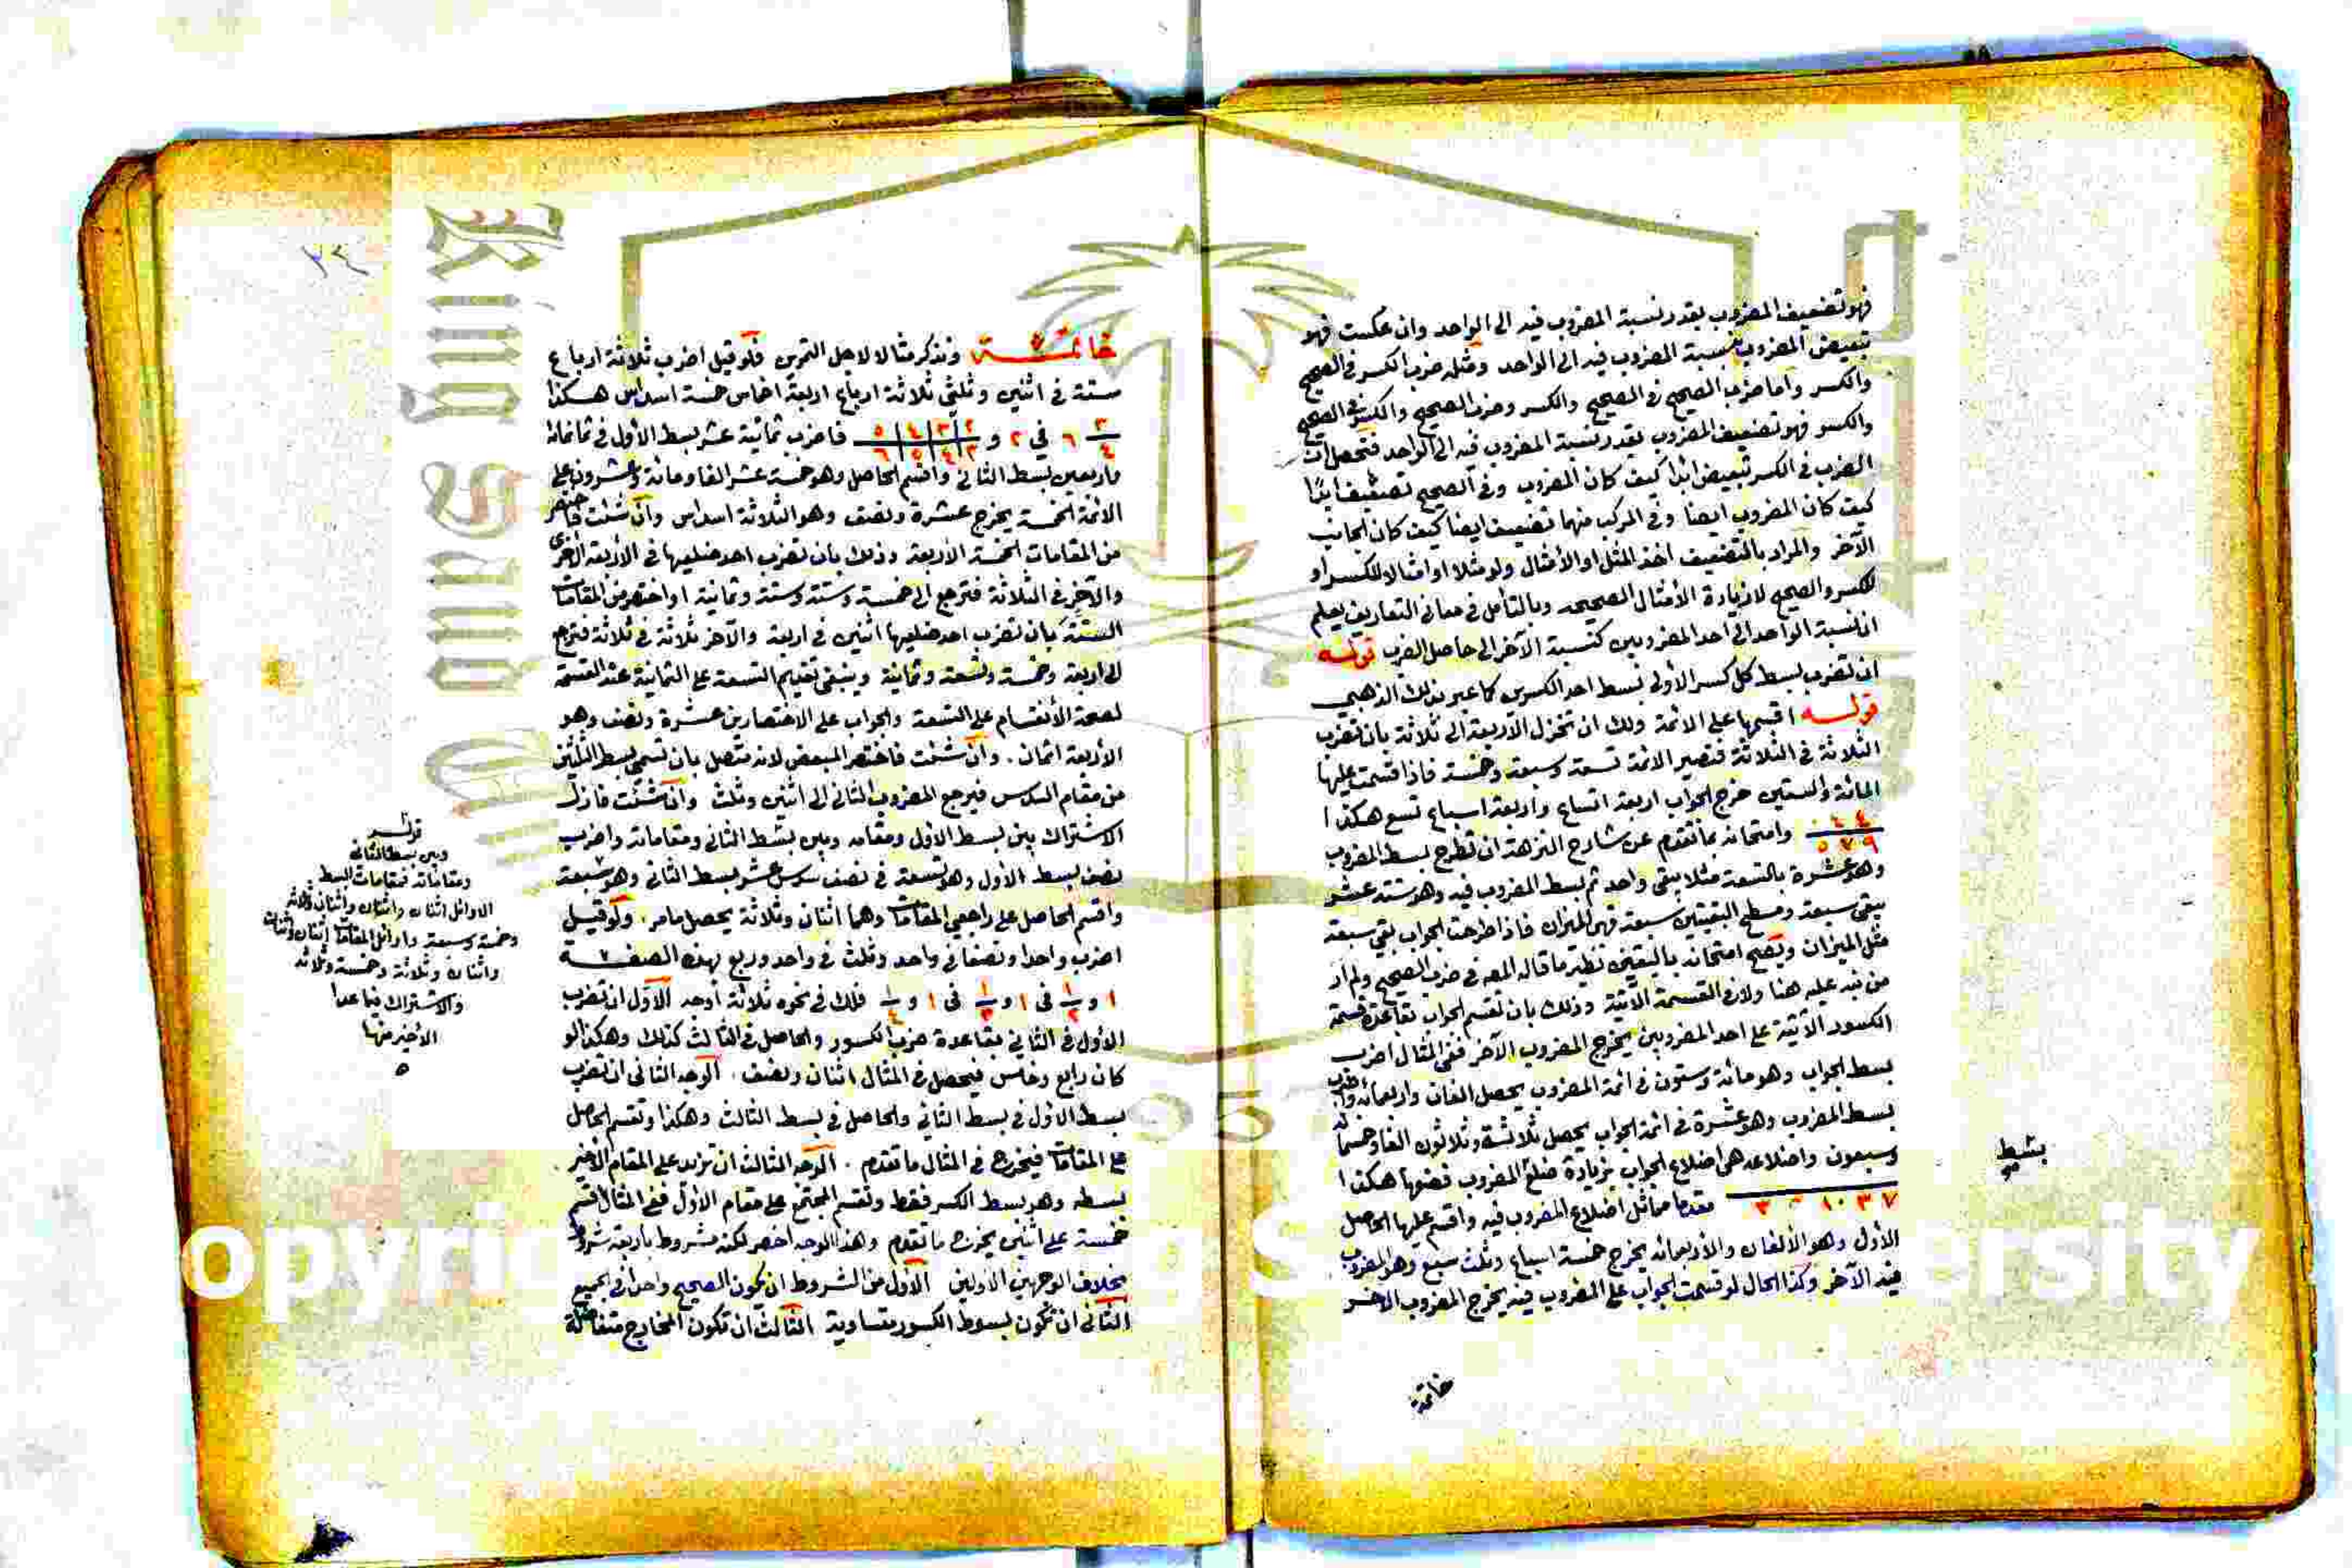 فهو تضعيف المضروب بقدر نسبة المضروب فيه الى الواحد وان عكست فهو
تبعيض المضروب بنسبة المضروب فيه الى الواحد ومثله ضرب الكسر في الصحيح
والكسر واما ضرب الصحيح في الصحيح والكسر وضرب الصحيح والكسر في الصحيح
والكسر فهو تضعيف المضروب بقدر نسبة المضروب فيه الى الواحد فتحصل ان
الضرب في الكسر تبعيض ابدا كيف كان المضروب وفي الصحيح تضعيف ابدا
كيف كان المضروب ايضا وفي المركب منهما تضعيف ايضا كيف كان الجانب
الآخر والمراد بالتضعيف اخذ المثل او الأمثال ولو مثلا او امثالا للكسر او
للكسر والصحيح لا زيادة الأمثال الصحيحه وبالتأمل في معاني التعاريف يعلم
ان نسبة الواحد الى احد المضروبين كنسبة الآخر الى حاصل الضرب قوله
ان تضرب بسط كل كسر الأولى بسط احد الكسرين كما عبر بذلك الذهبي
قوله اقسمها على الائمة ولك ان تختزل الأربعة الى ثلاثة بان تضرب
الثلاثة في الثلاثة فتصير الائمة تسعة وسبعة وخمسة فاذا قسمت عليها
المائة والستين خرج الجواب اربعة اتساع واربعة اسباع تسع هكذا
٤ ٤ ٠
٩ ٧ ٥ وامتحانه بما تقدم عن شارح النزهة ان تطرح بسط المضروب
وهو عشرة بالتسعة مثلا يبقى واحد ثم بسط المضروب فيه وهو ستة عشر
يبقى سبعة ومسطح البقيتين سبعة فهي الميزان فاذا طرحت الجواب بقي سبعة
مثل الميزان ويصح امتحانه باليقين نظير ما قاله المص في ضرب الصحيح ولم ار
من نبه عليه هنا ولا في القسمة الآتية وذلك بان تقسم الجواب بقاعدة قسمة
الكسور الآتية على احد المضروبين يخرج المضروب الآخر ففي المثال اضرب
بسط الجواب وهو مائة وستون في ائمة المضروب يحصل الفان واربعمائة واضرب
بسط المضروب وهو عشرة في ائمة الجواب يحصل ثلاثة وثلاثون الفا وخمسمائة
وسبعون واضلاعه هي اضلاع الجواب بزيادة ضلع المضروب فضعها هكذا
٧ ٣ ١٠ ٣ مقدما مماثل اضلاع المضروب فيه واقسم عليها الحاصل
الأول وهو الألفان والأربعمائه يخرج خمسة اسباع وثلث سبع وهو المضروب
فيه الآخر وكذا الحال لو قسمت الجواب على المضروب فيه يخرج المضروب الآخر
بسط
خاتمة
٢٤
خاتمة ونذكر مثالا لاجل التمرين فلو قيل اضرب ثلاثة ارباع
ستة في اثنين وثلثي ثلاثة ارباع اربعة اخماس خمسة اسداس هكذا
٣ ٢ ٣ ٤ ٥
٤ ٦ في ٢ و ٣ ٤ ٥ ٦ فاضرب ثمانية عشر بسط الأول في ثمانمائة
واربعين بسط الثاني واقسم الحاصل وهو خمسة عشر الفا ومائة وعشرون على
الائمة الخمسة يخرج عشرة ونصف وهو الثلاثة اسداس وان شئت فاختصر
من المقامات الخمسة الأربعة وذلك بان تضرب احد ضلعيها في الأربعة الأخرى
والآخر في الثلاثة فترجع الى خمسة وستة وستة وثمانية او اختصر من المقامات
الستة بان تضرب احد ضلعيها اثنين في اربعة والآخر ثلاثة في ثلاثة فترجع
الى اربعة وخمسة وتسعة وثمانية وينبغي تقديم التسعة على الثمانية عند القسمة
لصحة الأنقسام على التسعة والجواب على الاختصارين عشرة ونصف وهو
الأربعة اثمان . وان شئت فاختصر المبعض لانه متصل بان تسمي بسط الثلثين
من مقام السدس فيرجع المضروب الثاني الى اثنين وثلث وان شئت فازل
الاشتراك بين بسط الأول ومقامه وبين بسط الثاني ومقاماته واضرب
نصف بسط الأول وهو تسعة في نصف سدس عشر بسط الثاني وهو سبعة
واقسم الحاصل على راجعي المقامات وهما اثنان وثلاثة يحصل مامر . ولو قيل
اضرب واحدا ونصفا في واحد وثلث في واحد وربع بهذه الصفة
١ و ١/٢ في ١ و ١/٣ في ١ و ١/٤ فلك في نحوه ثلاثة أوجه الأول ان تضرب
الأول في الثاني بقاعدة ضرب الكسور والحاصل في الثالث كذلك وهكذا لو
كان رابع وخامس فيحصل في المثال اثنان ونصف . الوجه الثاني ان تضرب
بسط الأول في بسط الثاني والحاصل في بسط الثالث وهكذا وتقسم الحاصل
على المقامات فيخرج في المثال ما تقدم . الوجه الثالث ان تزيد على المقام الأخير
بسطه وهو بسط الكسر فقط وتقسم المجتمع على مقام الأول ففي المثال اقسم
خمسة على اثنين يخرج ما تقدم وهذا الوجه اخصر لكنه مشروط باربعة شروط
بخلاف الوجهين الأولين الأول من الشروط ان يكون الصحيح واحدا في الجميع
الثاني ان تكون بسوط الكسور متساوية الثالث ان تكون المخارج متفاضلة
قوله
وبين بسط الثاني
ومقاماته فمقامات البسط
الاوائل اثنان واثنان واثنان وثلاثة
وخمسة وسبعة واوائل المقامات اثنان واثنان
واثنان وثلاثة وخمسة وثلاثة
والاشتراك فيما عدا
الأخير منها